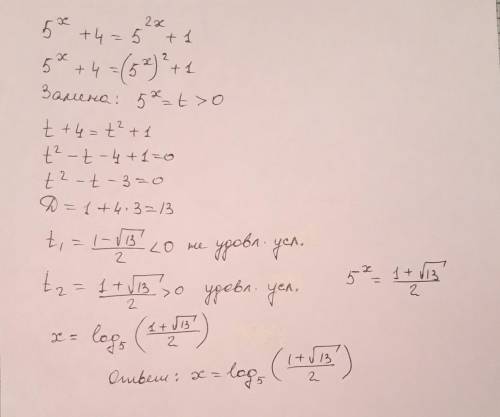 5^x + 4 = 5^{2x} + 1
5^x + 4 = (5^x)^2 + 1
Замена: 5^x = t > 0
t + 4 = t^2 + 1
t^2 - t - 4 + 1 = 0
t^2 - t - 3 = 0
D = 1 + 4 · 3 = 13
t_1 = \frac{1 - \sqrt{13}}{2} < 0 не удовл. усл.
t_2 = \frac{1 + \sqrt{13}}{2} > 0 удовл. усл. 5^x = \frac{1 + \sqrt{13}}{2}
x = log_5 (\frac{1 + \sqrt{13}}{2})
Ответ: x = log_5 (\frac{1 + \sqrt{13}}{2})